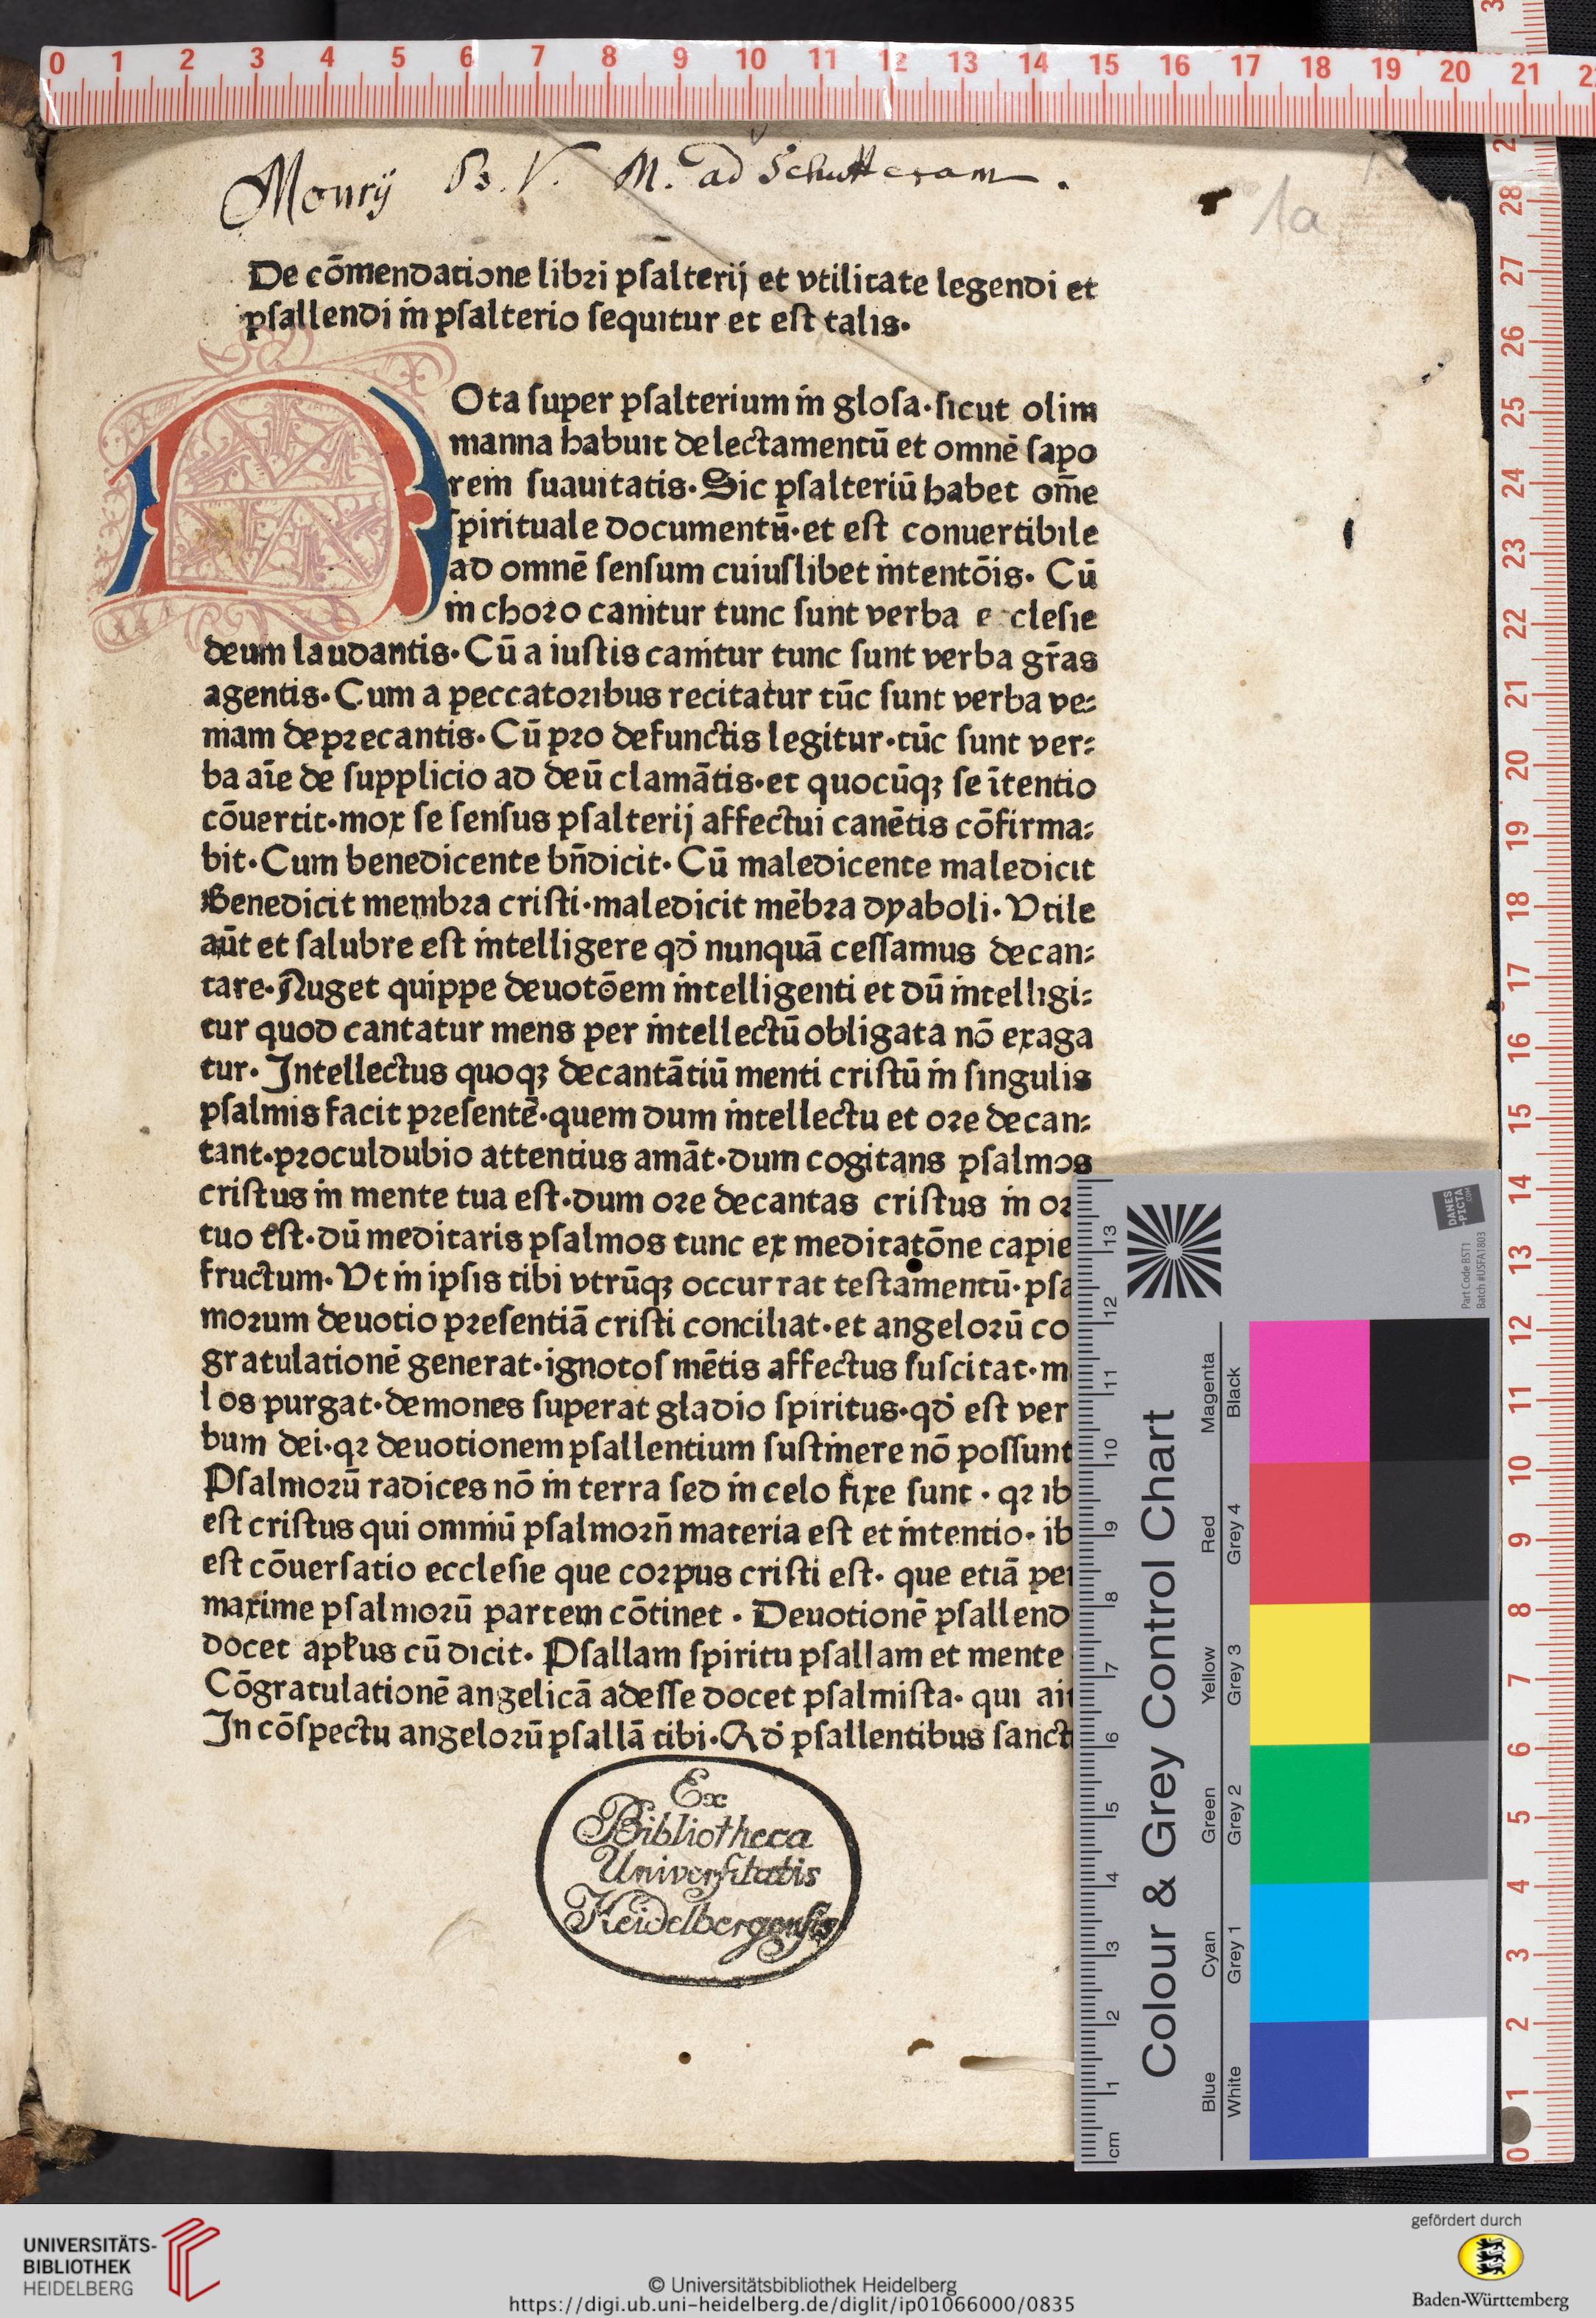 Monrij B. V. M. ad Schutteram.
1a
De cōmendatione libri pſalterij et vtilitate legendi et
pſallendi in pſalterio ſequitur et eſt talis.
NOta ſuper pſalterium in gloſa. ſicut olim
manna habuit delectamentū et omnē ſapo
rem ſuauitatis. Sic pſalteriū habet om̄e
ſpirituale documentū. et eſt conuertibile
ad omnē ſenſum cuiuſlibet intentōis. Cū
in choro canitur tunc ſunt verba ecclesie
deum laudantis. Cū a iuſtis canitur tunc ſunt verba gr̄as
agentis. Cum a peccatoribus recitatur tūc ſunt verba ve⸗
niam deprecantis. Cū pro defunctis legitur. tūc ſunt ver⸗
ba aīe de ſupplicio ad deū clamātis. et quocūqꝫ ſe ītentio
cōuertit. mox ſe ſenſus pſalterij affectui canētis cōfirma⸗
bit. Cum benedicente bn̄dicit. Cū maledicente maledicit
Benedicit membra criſti. maledicit mēbra dyaboli. Vtile
aūt et ſalubre eſt intelligere qd̓ nunquā ceſſamus decan⸗
tare. Auget quippe deuotōem intelligenti et dū intelligi⸗
tur quod cantatur mens per intellectū obligata nō exaga
tur. Intellectus quoqꝫ decantātiū menti criſtū in ſingulis
pſalmis facit preſentē. quem dum intellectu et ore decan⸗
tant. proculdubio attentius amāt. dum cogitans pſalmos
criſtus in mente tua eſt. dum ore decantas criſtus in or
tuo eſt. dū meditaris pſalmos tunc ex meditatōne capie
fructum. Vt in ipſis tibi vtrūqꝫ occurrat teſtamentū. pſa
morum deuotio preſentiā criſti conciliat. et angelorū co
gratulationē generat. ignotoſ mētis affectus ſuſcitat. m
los purgat. demones ſuperat gladio ſpiritus. qd̓ eſt ver
bum dei. qꝛ deuotionem pſallentium ſuſtinere nō poſſunt
Pſalmorū radices nō in terra ſed in celo fixe ſunt. qꝛ ib
eſt criſtus qui omniū pſalmorn̄ materia eſt et intentio. ib
eſt cōuerſatio ecclesie que corpus criſti eſt. que etiā per
maxime pſalmorū partem cōtinet. Deuotionē pſallend
docet apłus cū dicit. Pſallam ſpiritu pſallam et mente
Cōgratulationē angelicā adeſſe docet pſalmiſta. qui ait
In cōſpectu angelorū pſallā tibi. Qd̓ pſallentibus ſanct
Ex
Bibliotheca
Univerſitatis
Heidelbergenſis
Colour & Grey Control Chart
Blue Cyan Green Yellow Red Magenta
White Grey 1 Grey 2 Grey 3 Grey 4 Black
cm 1 2 3 4 5 6 7 8 9 10 11 12 13
DANES
-PICTA
.COM
Part Code BST1
Batch #USFA1803
0 1 2 3 4 5 6 7 8 9 10 11 12 13 14 15 16 17 18 19 20 21
0 1 2 3 4 5 6 7 8 9 10 11 12 13 14 15 16 17 18 19 20 21 22 23 24 25 26 27 28
UNIVERSITÄTS-
BIBLIOTHEK
HEIDELBERG
© Universitätsbibliothek Heidelberg
https://digi.ub.uni-heidelberg.de/diglit/ip01066000/0835
gefördert durch
Baden-Württemberg